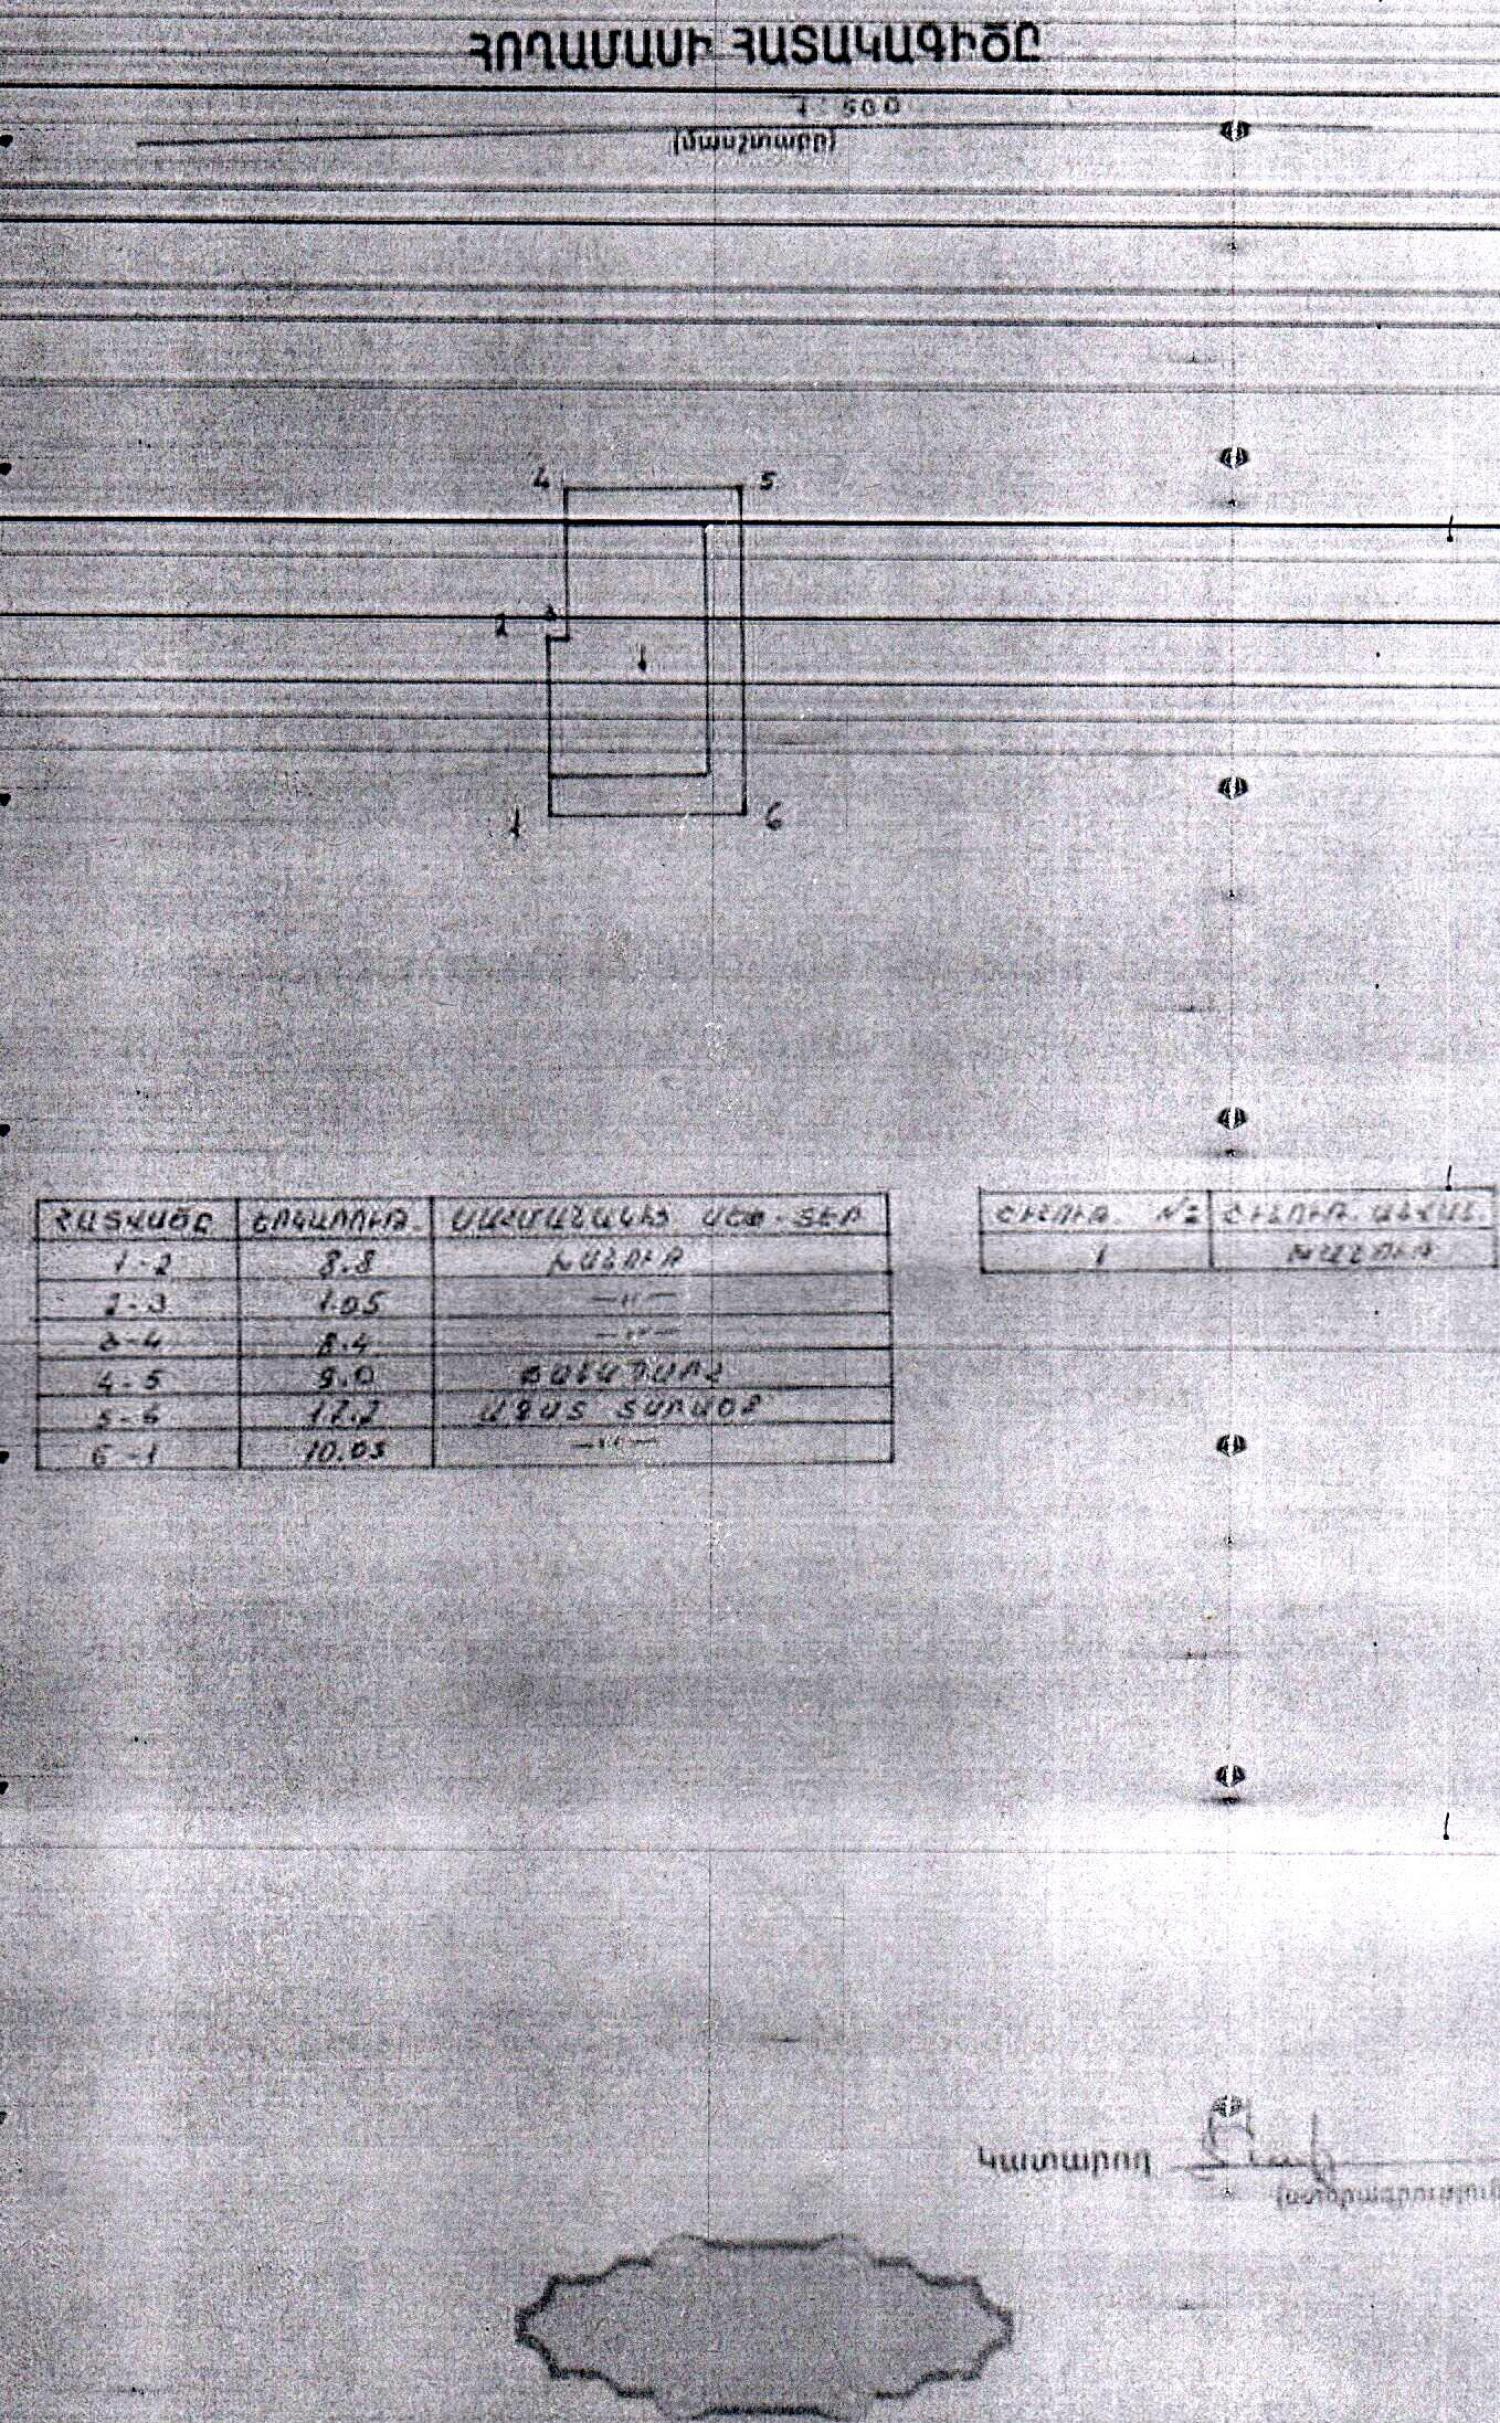 ՀՈՂԱՄԱՍԻ ՀԱՏԱԿԱԳԻԾԸ
1:500
(մասշտաբը)
4 5
2 3
1
1 6
ՀԱՏՎԱԾԸ ԵՐԿԱՐՈՒԹ. ՍԱՀՄԱՆԱԿԻՑ ՍԵՓ-ՏԵՐ
1-2 8.8 ԽԱՆՈՒԹ
2-3 1.05 —〃—
3-4 8.4 —〃—
4-5 9.0 ՃԱՆԱՊԱՐՀ
5-6 17.2 ԱԶԱՏ ՏԱՐԱԾՔ
6-1 10.05 —〃—
ՇԻՆՈՒԹ. № ՇԻՆՈՒԹ. ԱՆՎԱՆ.
1 ԽԱՆՈՒԹ
Կատարող